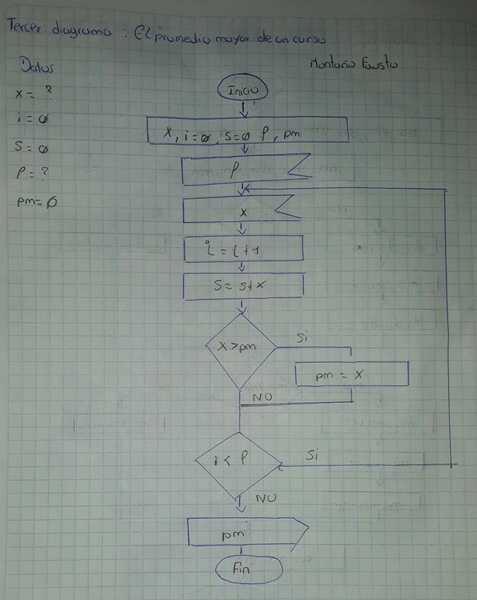 Tercer diagrama : El promedio mayor de un curso
Montaño Fausto
Datos
x = ?
i = 0
S = 0
P = ?
pm = 0
Inicio
X, i = 0, S = 0 P, pm
P
x
i = i + 1
S = S + X
X > pm
Si
pm = X
NO
i < P
Si
NO
pm
Fin